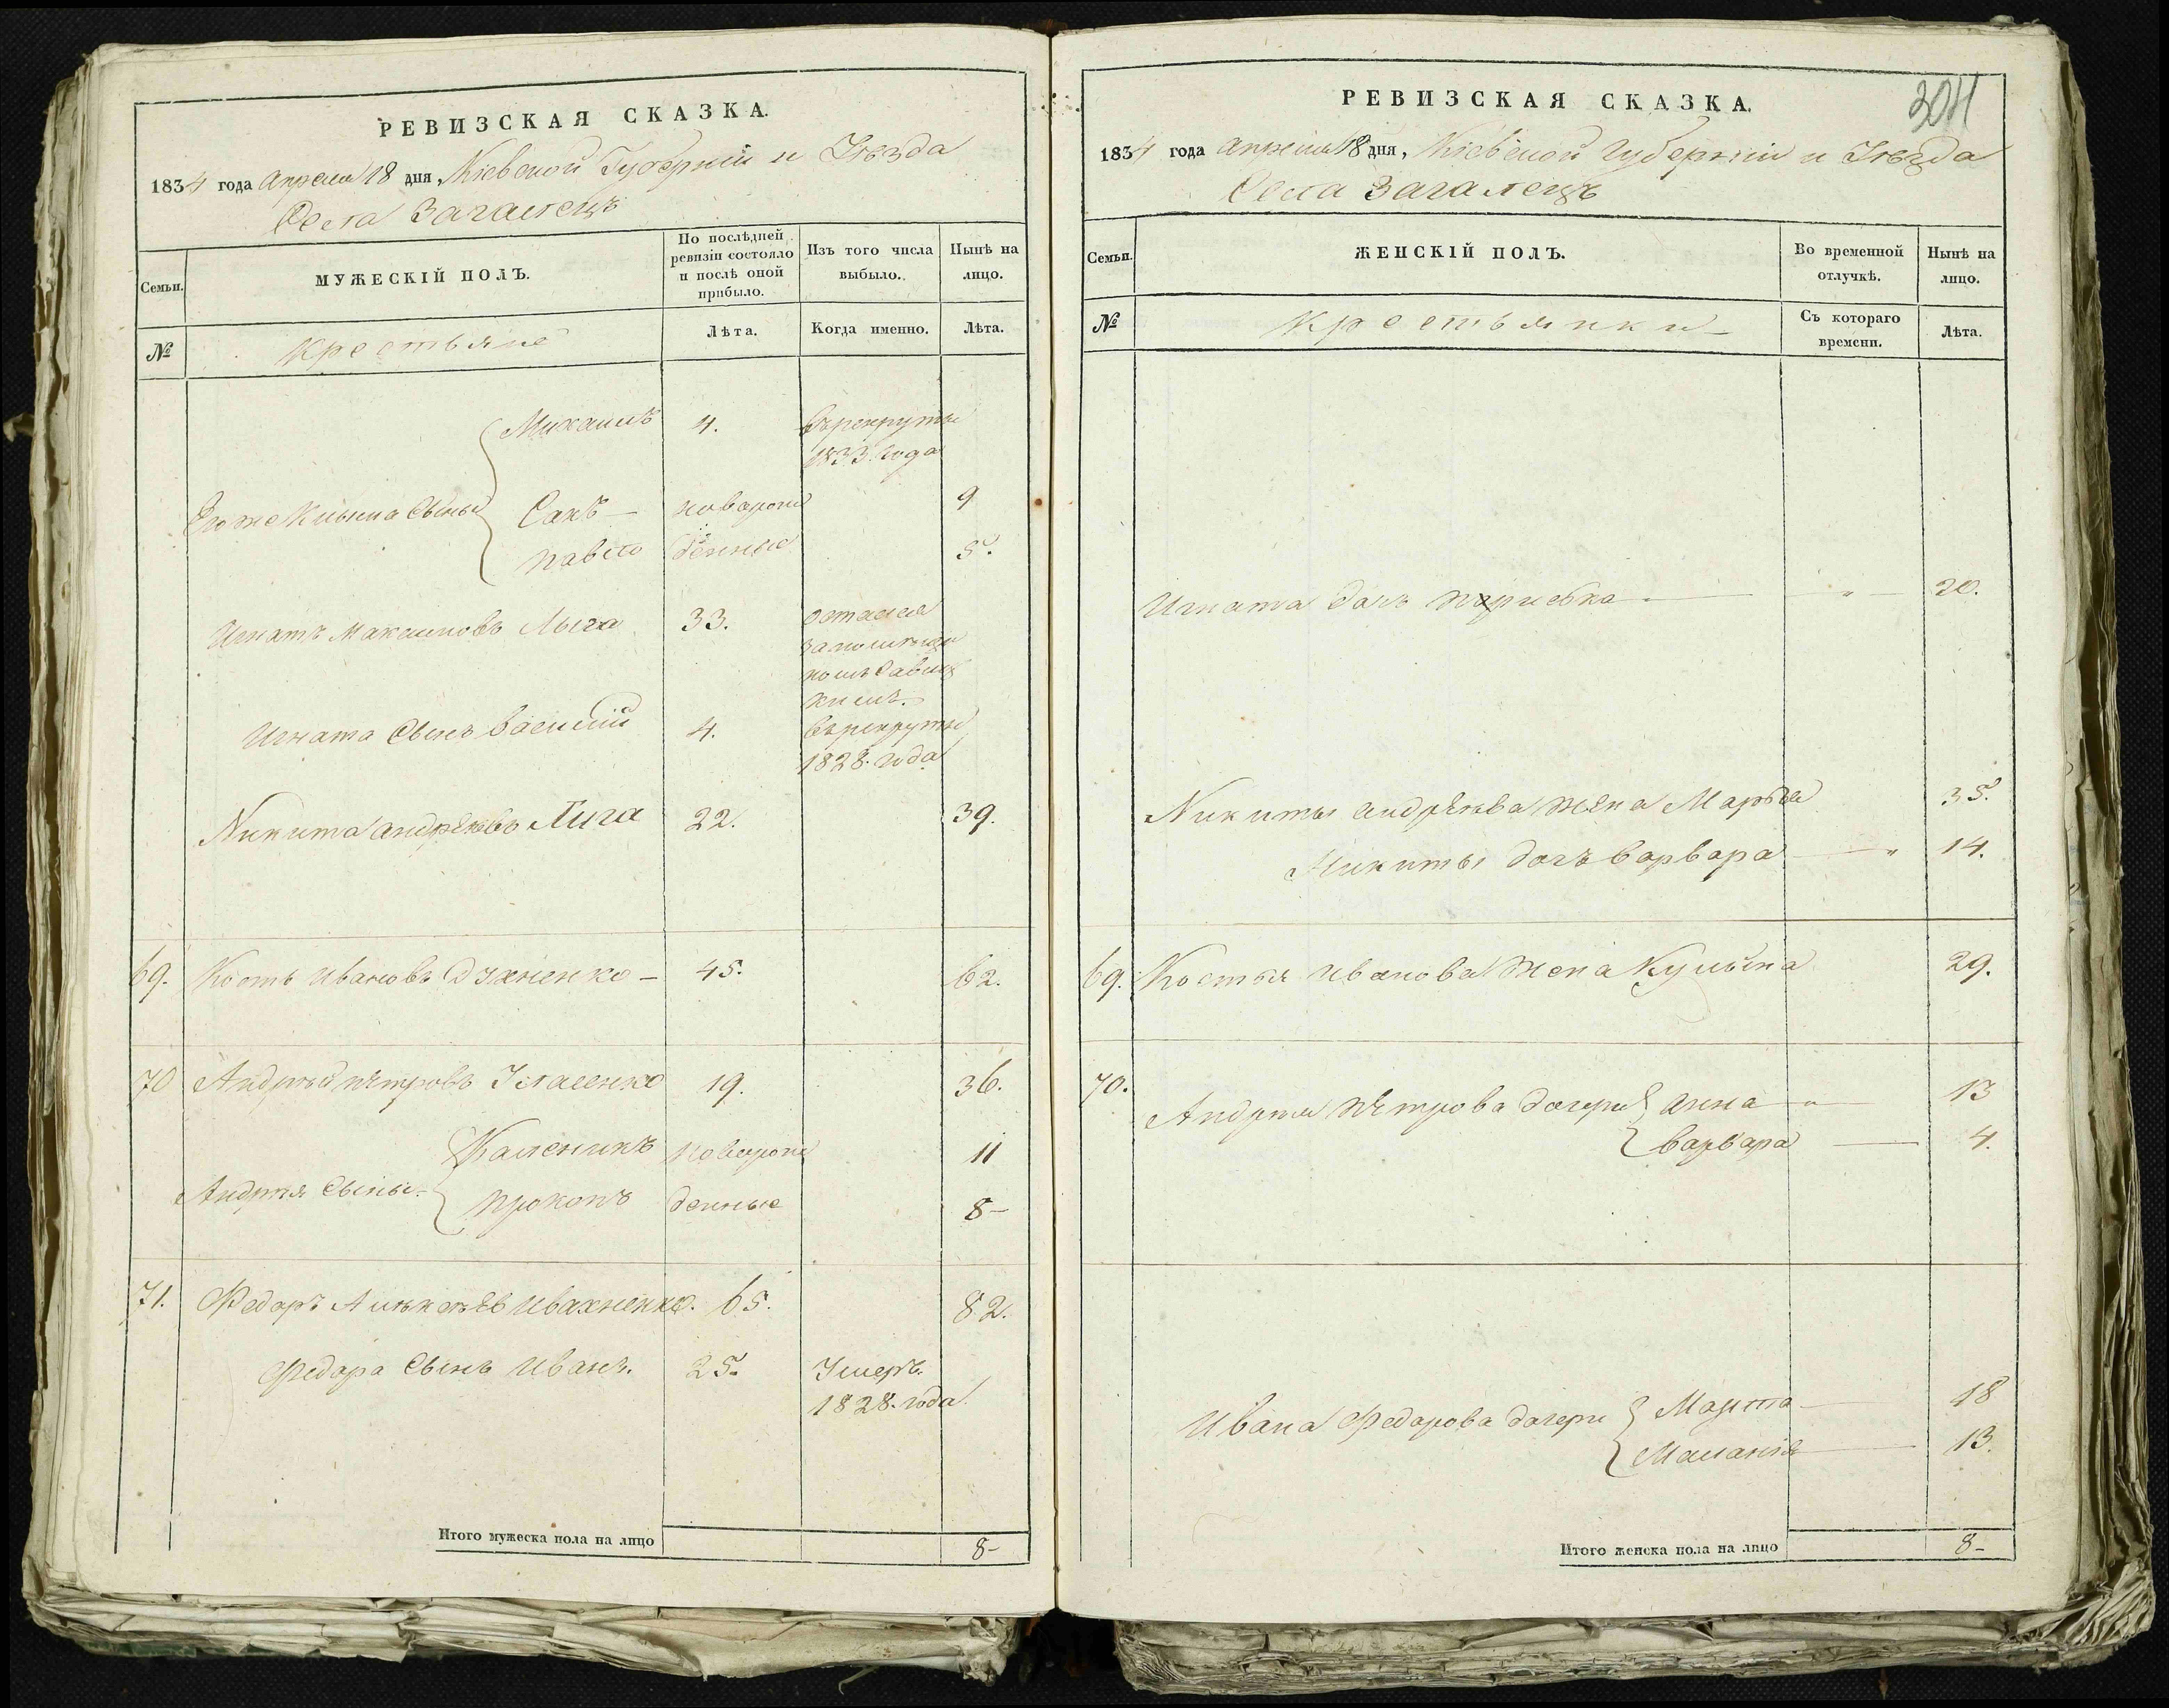 РЕВИЗСКАЯ СКАЗКА.
1834 года Апреля 18 дня, Кіевской Губерніи и Уезда
Села Загалецъ
Семьи.
МУЖЕСКІЙ ПОЛЪ.
По послѣдней ревизіи состояло и послѣ оной прибыло.
Изъ того числа выбыло.
Нынѣ на лицо.
№
Крестьяне
Лѣта.
Когда именно.
Лѣта.
Михаилъ 4. Въ рекруты
1833. года
Его же Клыма Сыны Сакъ – новорож 9
Павло денные 5.
Игнатъ Максимовъ Лыга 33. остался
за помѣщи
комъ
Игната Сынъ Василій 4. въ рекруты
1828. года
Никита Андрѣевъ Лыга 22. 39.
69. Кость Ивановъ – 45. 62.
70 Андрѣй Петровъ Уласенко 19. 36.
Каленикъ новорож 11
Андрѣя Сыны Прокопъ денные 8-
71. Федоръ Алѣксѣев Ивахненко. 65. 82.
Федора Сынъ Иванъ. 25. Умеръ.
1828. года
Итого мужеска пола на лицо 8-
304
РЕВИЗСКАЯ СКАЗКА.
1834 года Апреля 18 дня, Кіевской Губерніи и Уезда
Села Загалецъ
Семьи.
ЖЕНСКІЙ ПОЛЪ.
Во временной отлучкѣ.
Нынѣ на лицо.
№
Крестьянки
Съ котораго времени.
Лѣта.
Игната дочь 20.
Никиты Андрѣева жена Марья 35.
Никиты дочь Варвара " 14.
69. Костя Иванова жена Кулына 29.
70. Андрѣя Петрова дочери Анна " 13
Варвара 4.
Ивана Федорова дочери Марта 18
Маланія 13.
Итого женска пола на лицо 8-